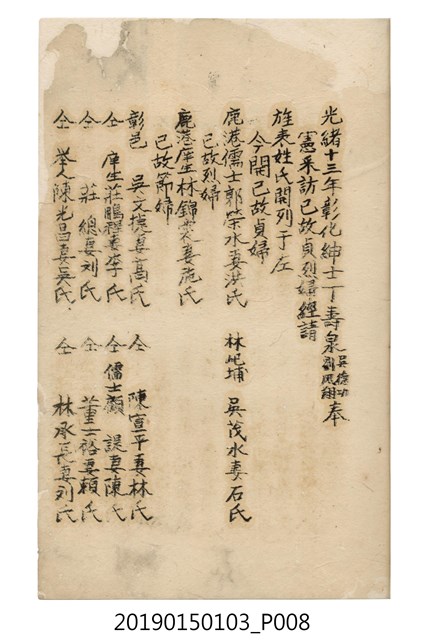 光緒十三年彰化紳士丁壽泉吳德功劉鳳翔奉
憲采訪已故貞烈婦經請
旌表姓氏開列于左
今開已故貞婦
鹿港儒士郭榮水妻洪氏 林圯埔 吳茂水妻石氏
已故烈婦
鹿港庠生林錦裳妻施氏
已故節婦
彰邑 吳文捷妻高氏 仝 陳宣平妻林氏
仝 庠生莊鵬程妻李氏 仝 儒士顧 謨妻陳氏
仝 莊 總妻刘氏 仝 董士裕妻賴氏
仝 举人陳光昌妻吳氏 仝 林承長妻刘氏
20190150103_P008